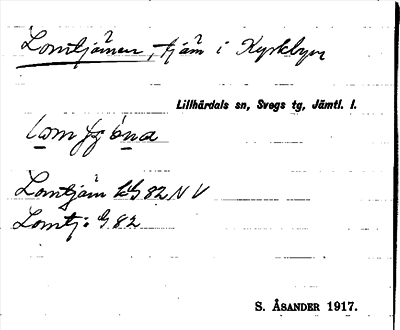 Lomtjärnen, tjärn i Kyrkbyn
Lillhärdals sn, Svegs tg, Jämtl. l.
Lomtjärn 82 N V
Lomtj. 82
S. ÅSANDER 1917.